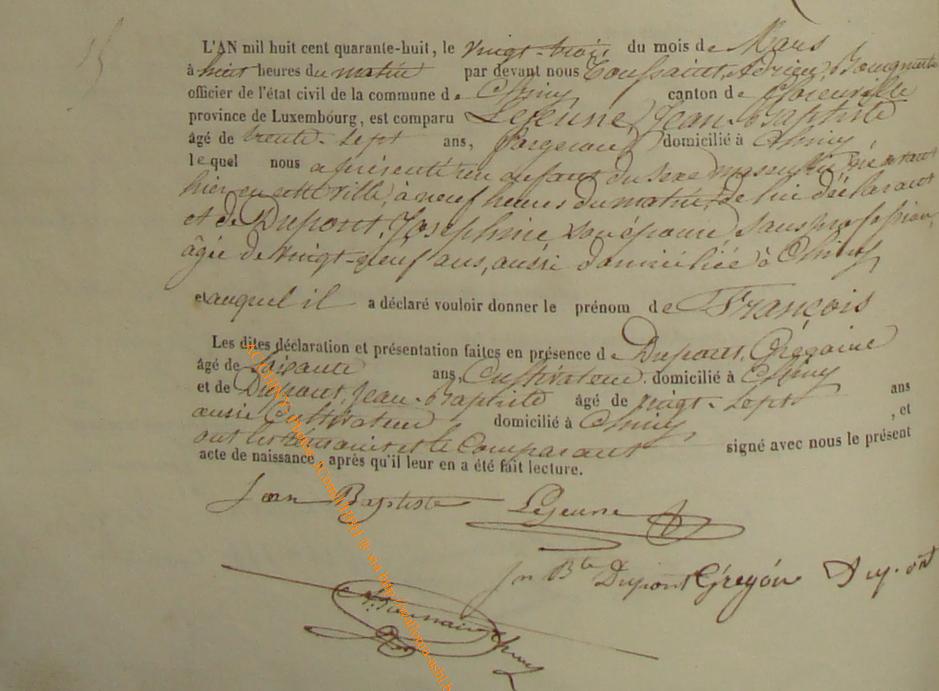 15
L'AN mil huit cent quarante-huit, le vingt-trois du mois de Mars
à huit heures du matin par devant nous Toussaint, Adrien,
officier de l'état civil de la commune de Chiny canton de
province de Luxembourg, est comparu Lejeune, Jean-Baptiste
âgé de trente-sept ans, domicilié à Chiny
lequel nous a présenté un enfant du sexe masculin, né avant
hier en cette ville, à neuf heures du matin, de lui déclarant
et de Dupont, Joséphine, son épouse, sans profession,
âgée de vingt-neuf ans, aussi domiciliée à Chiny
et auquel il a déclaré vouloir donner le prénom de François
Les dites déclaration et présentation faites en présence de Dupont, Grégoire
âgé de soixante ans, Cultivateur domicilié à Chiny
et de Dupont, Jean-Baptiste âgé de vingt-sept ans
aussi Cultivateur domicilié à Chiny , et
ont les témoins et le Comparant signé avec nous le présent
acte de naissance, après qu'il leur en a été fait lecture.
Jean Baptiste Lejeune
Jn Bte Dupont Grégoir Dupont